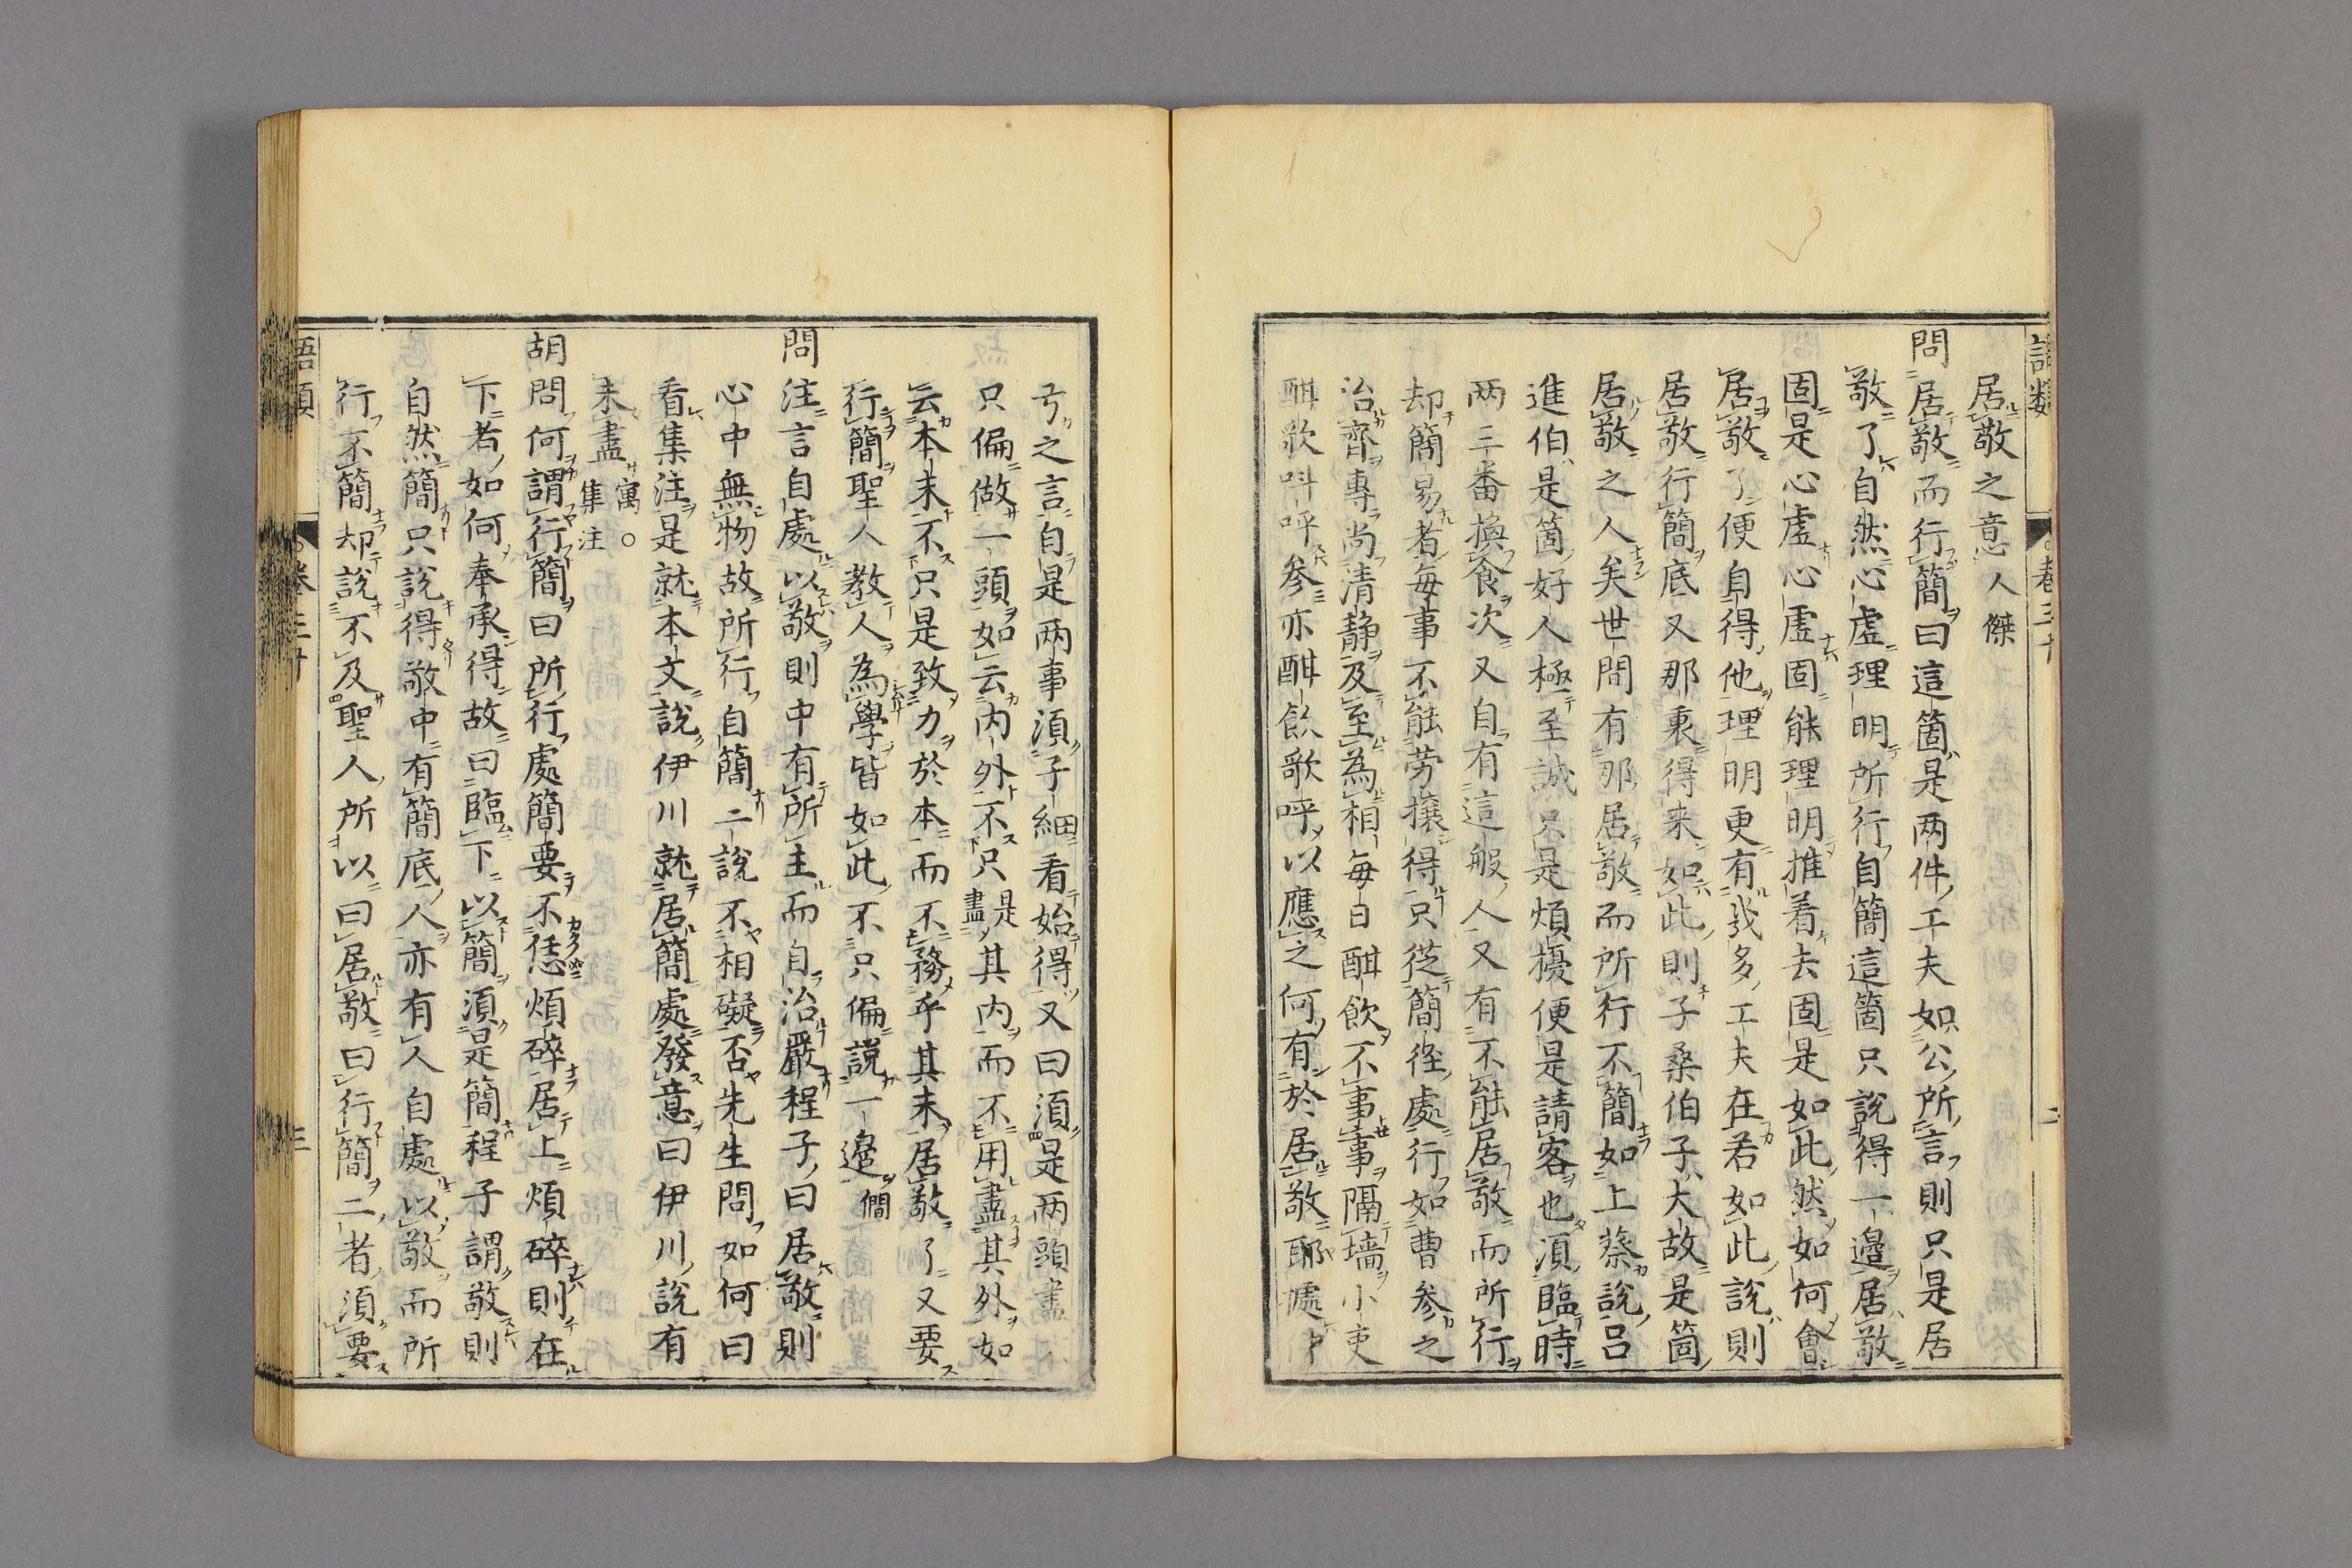 居敬之意人傑
問居敬而行簡曰這箇是两件工夫如公所言則只是居
敬了自然心虚理明所行自簡這箇只說得一邉居敬
固是心虚心虚固能理明推着去固是如此然如何會
居敬了便自得他理明更有幾多工夫在若如此說則
居敬行簡底又那裏得来如此則子桑伯子大故是箇
居敬之人矣世間有那居敬而所行不簡如上蔡說吕
進伯是箇好人極至誠只是煩擾便是請客也湏臨時
两三番換食次又自有這般人又有不能居敬而所行
却簡易者毎事不能劳攘得只從簡徑處行如曹参之
治齊專尚清静及至為相毎日酣飲不事事隔墻小吏
酣歌叫呼参亦酣飲歌呼以應之何有於居敬耶處中
亐之言自是两事湏子細看始得又曰湏是两頭盡不
只偏做一頭如云内外不只是盡其内而不用盡其外如
云本末不只是致力於本而不務乎其末居敬了又要
行簡聖人教人為學皆如此不只偏説一邉僩
問注言自處以敬則中有所主而自治嚴程子曰居敬則
心中無物故所行自簡二說不相礙否先生問如何曰
看集注是就本文說伊川就居簡處發意曰伊川說有
未盡寓○集注
胡問何謂行簡曰所行處簡要不恁煩碎居上煩碎則在
下者如何奉承得故曰臨下以簡湏是簡程子謂敬則
自然簡只說得敬中有簡底人亦有人自處以敬而所
行不簡却說不及聖人所以曰居敬曰行簡二者湏要